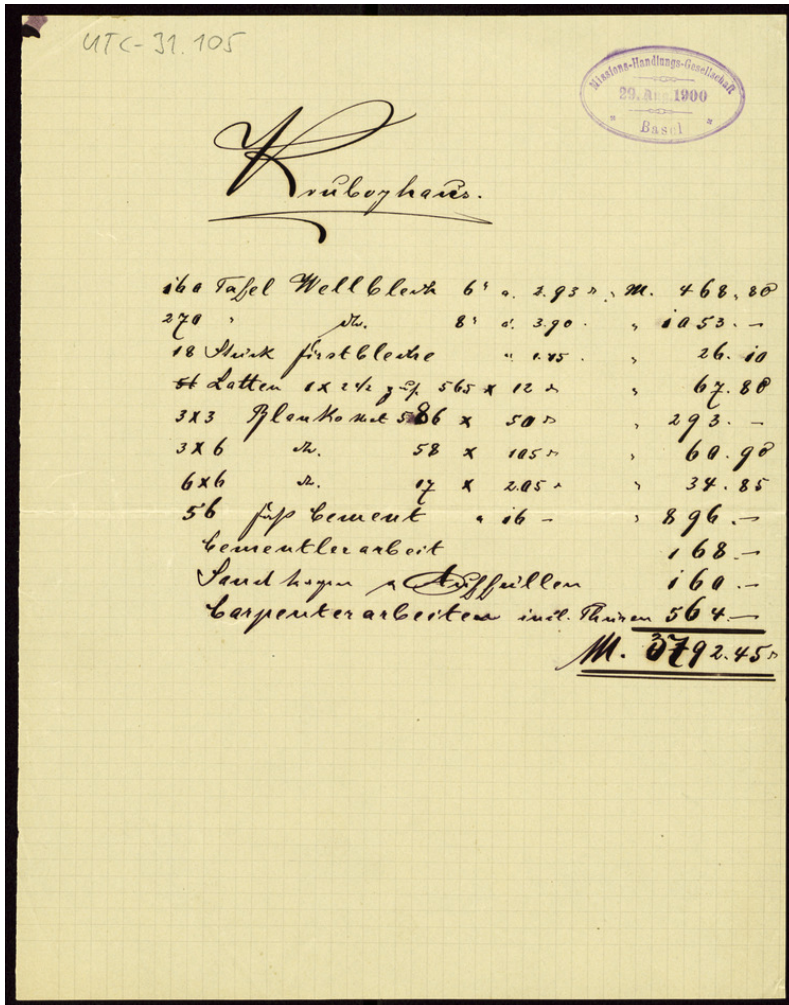 UTC-31.105
Missions-Handlungs-Gesellschaft
29. Aug. 1900
Basel
Kruboyhaus.
160 Tafel Wellblech 6' a. 2.93 " M. 468.80
270 " do. 8' a. 3.90. " 1053.—
18 Stück Firstbleche " 1.45. " 26.10
Latten 1 x 2 1/2 zus. 565 x 12 " 67.80
3x3 Planken 586 x 50 " 293.—
3x6 do. 58 x 105 " 60.90
6x6 do. 17 x 2.05 " 34.85
56 Fass Cement " 16 — " 896.—
Cementlerarbeit 168.—
Sand Auffüllen 160.—
Carpenterarbeiten incl. Thüren 564.—
M. 3792.45